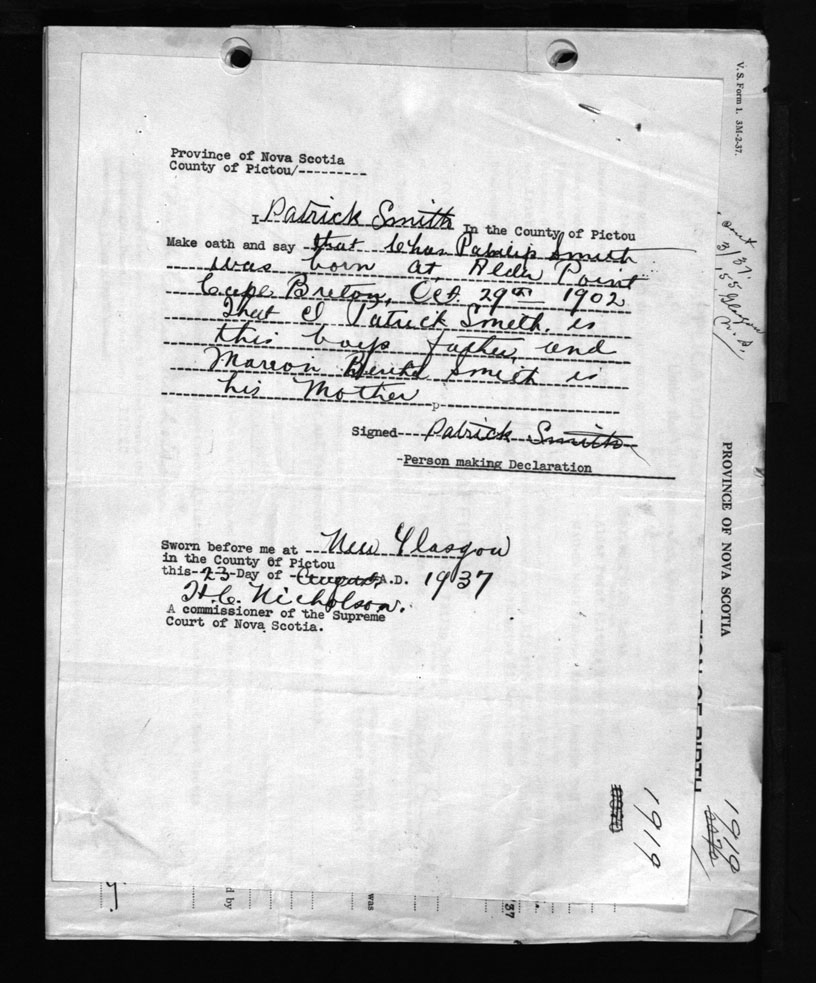 Province of Nova Scotia
County of Pictou/---------
I Patrick Smith In the County of Pictou
Make oath and say that Chas Smith
was born at Alder Point
Cape Breton, Oct. 29th 1902
That I Patrick Smith, is
this boys father, and
Marion Bertha Smith is
his Mother
p
Signed---Patrick Smith
-Person making Declaration
Sworn before me at New Glasgow
in the County of Pictou
this-23-Day of -August, A.D. 1937
H.C. Nicholson.
A commissioner of the Supreme
Court of Nova Scotia.
V. S. Form 1. 3M-2-37.
3/37.
Glasgow
N.S.
PROVINCE OF NOVA SCOTIA
OF BIRTH
1919
1919
d by
was
37